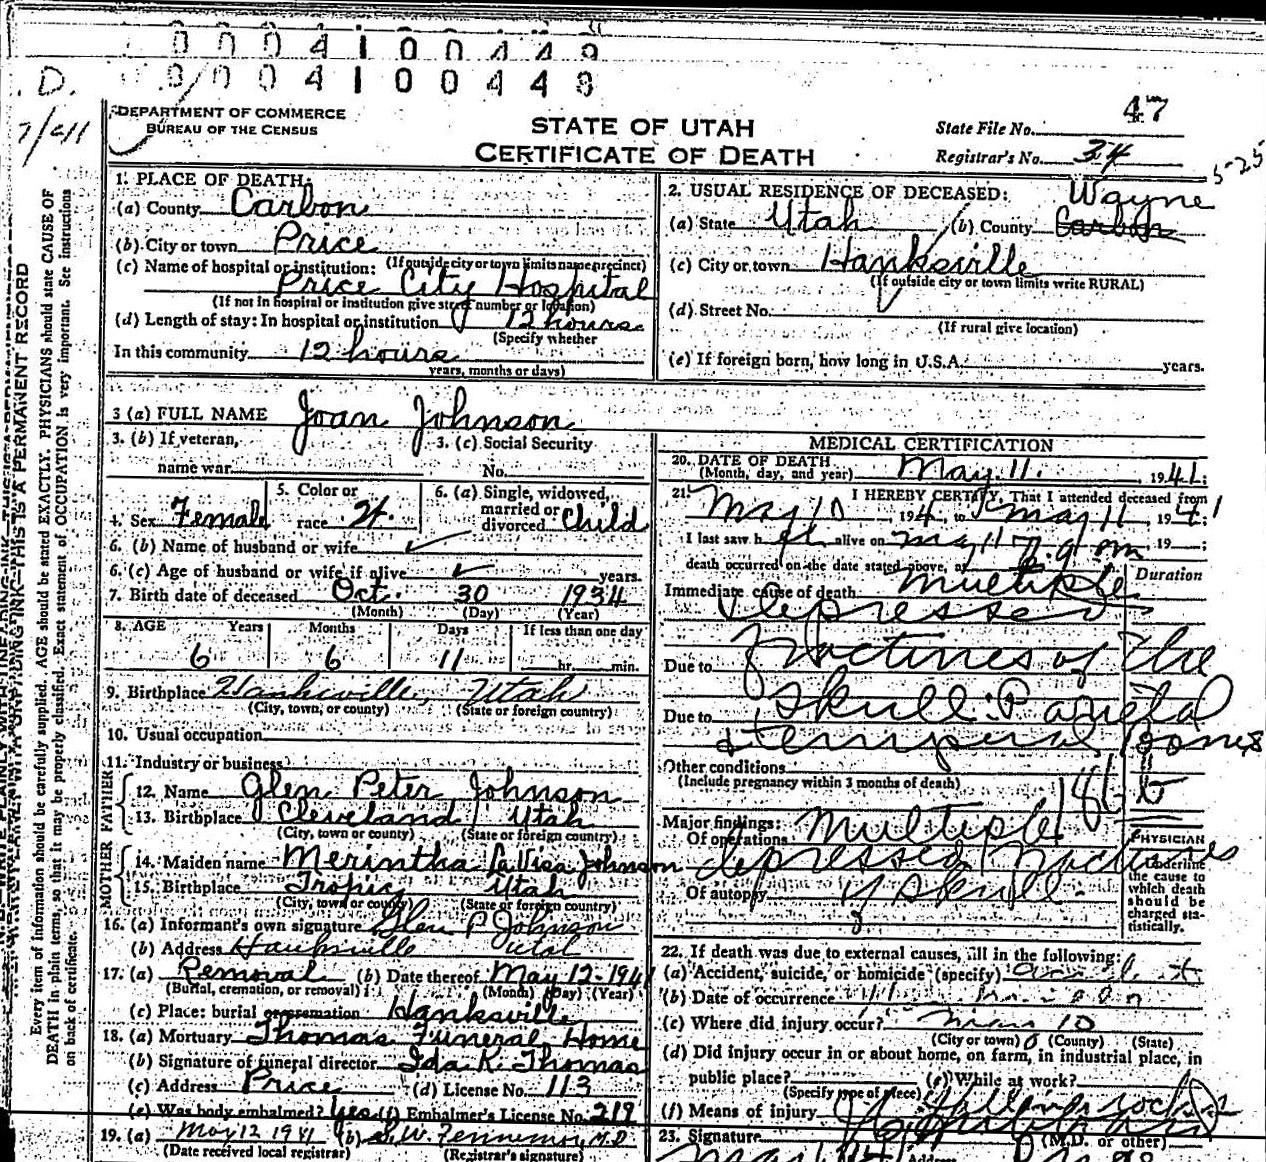 0004100449
0004100449
.D.
DEPARTMENT OF COMMERCE
BUREAU OF THE CENSUS
STATE OF UTAH
CERTIFICATE OF DEATH
47
State File No.
Registrar's No. 34
5-25
1. PLACE OF DEATH:
(a) County Carbon
(b) City or town Price
(If outside city or town limits name precinct)
(c) Name of hospital or institution:
Price City Hospital
(If not in hospital or institution give street number or location)
(d) Length of stay: In hospital or institution 12 hours
(Specify whether
In this community 12 hours
years, months or days)
2. USUAL RESIDENCE OF DECEASED:
(a) State Utah (b) County Carbon Wayne
(c) City or town Hanksville
(If outside city or town limits write RURAL)
(d) Street No.
(If rural give location)
(e) If foreign born, how long in U.S.A. years.
3 (a) FULL NAME Joan Johnson
3. (b) If veteran, name war
3. (c) Social Security No.
4. Sex Female
5. Color or race
6. (a) Single, widowed, married or divorced Child
6. (b) Name of husband or wife
6. (c) Age of husband or wife if alive years.
7. Birth date of deceased Oct. 30 1934
(Month) (Day) (Year)
8. AGE Years Months Days If less than one day
6 6 11 hr. min.
9. Birthplace Hanksville, Utah
(City, town, or county) (State or foreign country)
10. Usual occupation
11. Industry or business
FATHER
12. Name Glen Peter Johnson
13. Birthplace Cleveland Utah
(City, town or county) (State or foreign country)
MOTHER
14. Maiden name Merintha LaVisa Johnson
15. Birthplace Tropic Utah
(City, town or county) (State or foreign country)
16. (a) Informant's own signature Glen P Johnson
(b) Address Hanksville Utah
17. (a) Removal (b) Date thereof May 12-1941
(Burial, cremation, or removal) (Month) (Day) (Year)
(c) Place: burial or cremation Hanksville
18. (a) Mortuary Thomas Funeral Home
(b) Signature of funeral director Ida K. Thomas
(c) Address Price (d) License No. 113
(e) Was body embalmed? Yes (f) Embalmer's License No. 219
19. (a) May 12 1941 (b)
(Date received local registrar) (Registrar's signature)
MEDICAL CERTIFICATION
20. DATE OF DEATH
(Month, day, and year) May. 11. 1941.
21. I HEREBY CERTIFY, That I attended deceased from
May 10, 194, to May 11 1941;
I last saw her alive on May 11 19 ;
death occurred on the date stated above, at
Duration
Immediate cause of death Multiple
depressed
Due to fractures of the
Due to skull: Parietal
& temporal bones
Other conditions
(Include pregnancy within 3 months of death)
Major findings:
Of operations Multiple
depressed fractures
Of autopsy of skull
PHYSICIAN
Underline
the cause to
which death
should be
charged sta-
tistically.
22. If death was due to external causes, fill in the following:
(a) Accident, suicide, or homicide (specify) Accident
(b) Date of occurrence
(c) Where did injury occur? May 10
(City or town) (County) (State)
(d) Did injury occur in or about home, on farm, in industrial place, in
public place? (e) While at work?
(Specify type of place)
(f) Means of injury falling rock
23. Signature (M.D. or other)
Address
Every item of information should be carefully supplied. AGE should be stated EXACTLY. PHYSICIANS should state CAUSE OF
DEATH in plain terms, so that it may be properly classified. Exact statement of OCCUPATION is very important. See instructions
on back of certificate.
THIS IS A PERMANENT RECORD